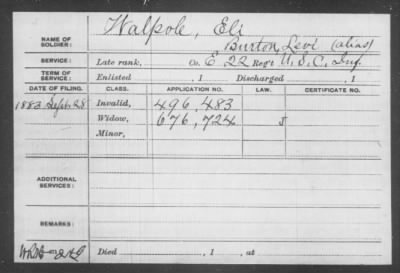 NAME OF SOLDIER: Walpole, Eli
Burton, Levi (alias)
SERVICE: Late rank, Co. E 22 Reg't U.S.C. Inf.
TERM OF SERVICE: Enlisted , 1 Discharged , 1
DATE OF FILING. CLASS. APPLICATION NO. LAW. CERTIFICATE NO.
1883 Sept. 28 Invalid, 496,483
Widow, 676,724
Minor,
ADDITIONAL SERVICES:
REMARKS:
Died , 1 , at